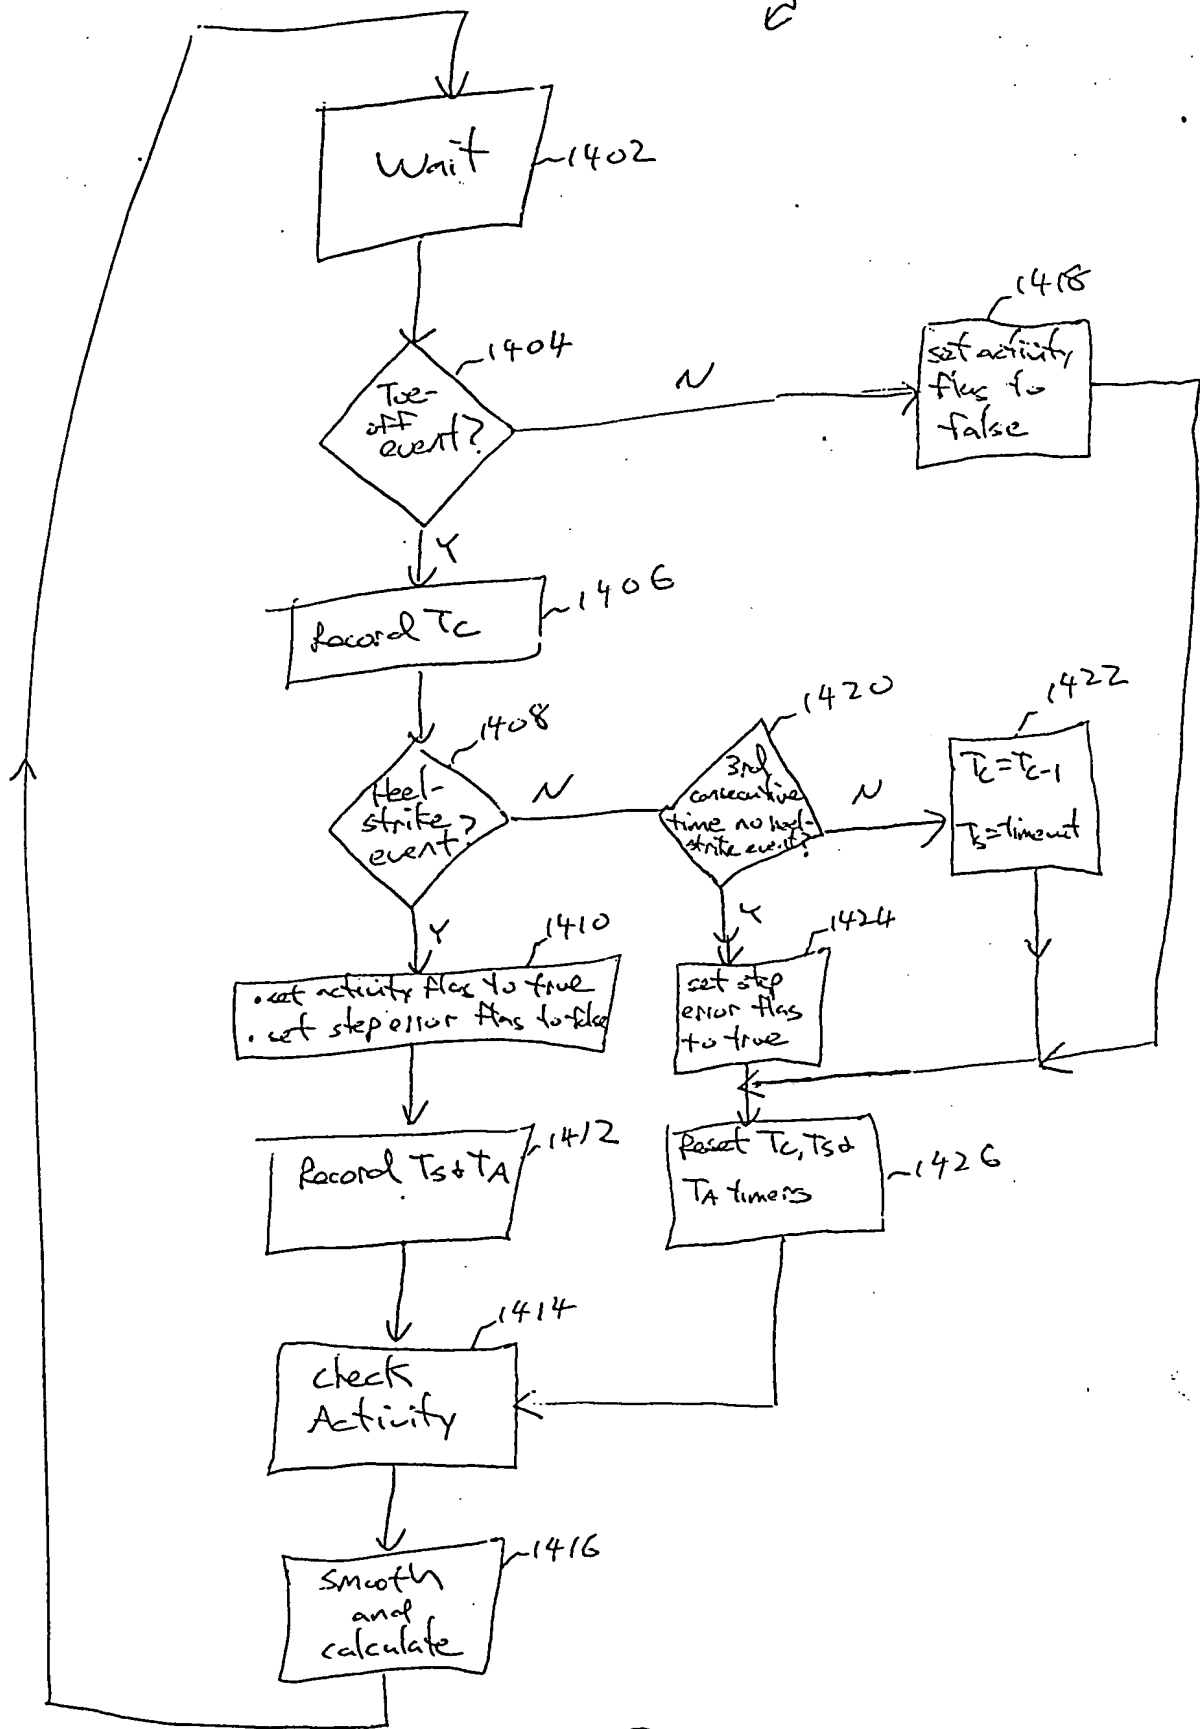 Wait
1402
1418
set activity
flag to
false
1404
Toe-
off
event?
N
Y
1406
Record Tc
1408
Heel-
strike
event?
N
1420
3rd
consecutive
time no heel-
strike event?
N
1422
Tc = Tc-1
Ts = timeout
Y
1410
• set activity flag to true
• set step error flag to false
Y
1424
set step
error flag
to true
1412
Record Ts & TA
Reset Tc, Ts &
TA timers
1426
1414
Check
Activity
1416
Smooth
and
calculate